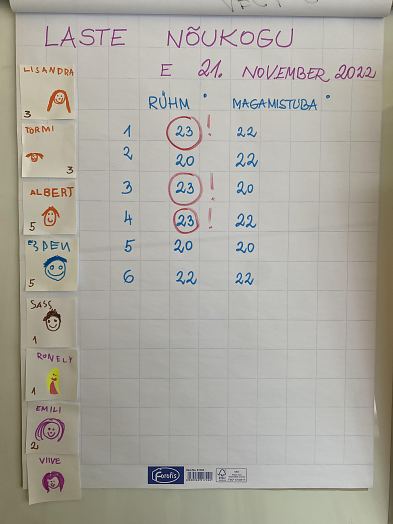 LASTE NÕUKOGU
E 21. NOVEMBER 2022
RÜHM ° MAGAMISTUBA °
1 23 ! 22
2 20 22
3 23 ! 20
4 23 ! 22
5 20 20
6 22 22
LISANDRA
3
TORMI
3
ALBERT
5
5
SASS
1
RONELY
1
EMILI
2
VIIVE
Forofis
FSC